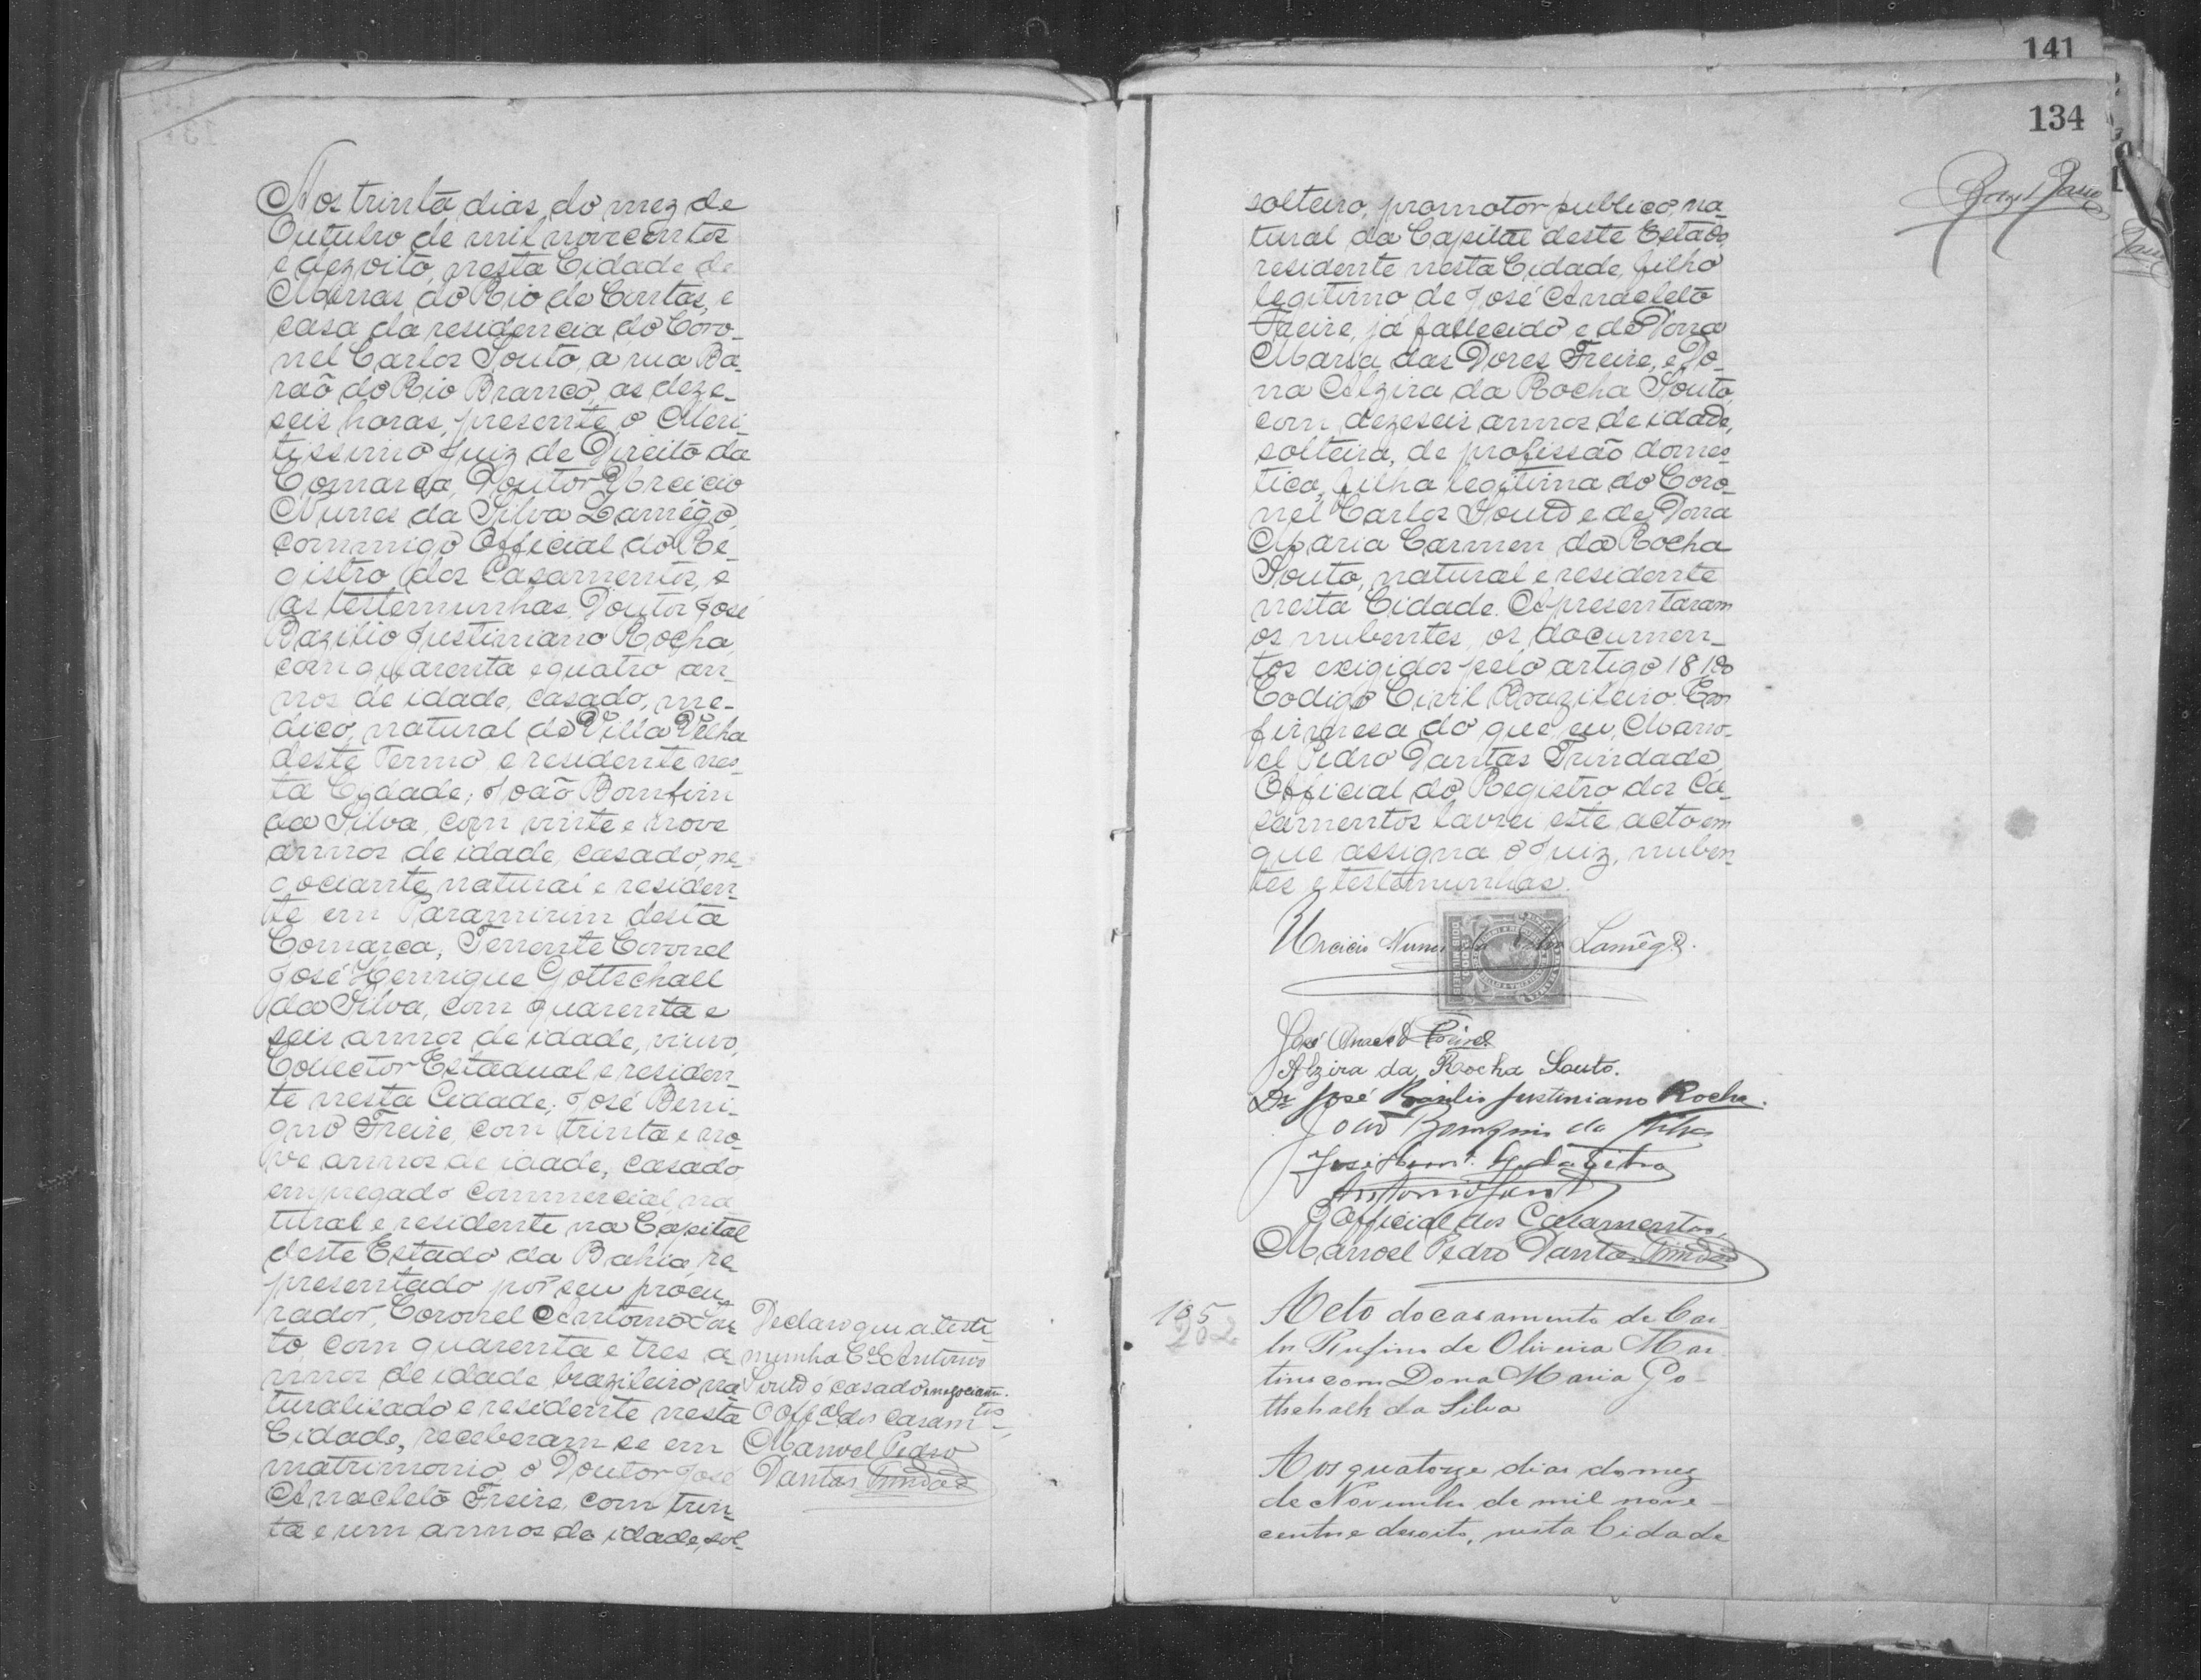 Aos trinta dias do mez de
Outubro de mil novecentos
e dezoito, nesta Cidade de
Minas do Rio de Contas, e
casa da residencia do Coro-
nel Carlos Souto, a rua Ba-
rão do Rio Branco, as deze-
seis horas, presente o Meri-
tissimo Juiz de Direito da
Comarca, Doutor Urcicio
Nunes da Silva Lamêgo,
commigo Official do Re-
gistro dos Casamentos, e
as testemunhas Doutor José
Bazilio Justiniano Rocha,
com quarenta e quatro an-
nos de idade, casado, me-
dico, natural da Villa Velha
deste Termo e residente nes-
ta Cidade; João Bomfim
da Silva, com vinte e nove
annos de idade, casado, ne-
gociante, natural e residen-
te em Paramirim desta
Comarca; Tenente Coronel
José Henrique Gottschall
da Silva, com quarenta e
seis annos de idade, viuvo,
Collector Estadual e residen-
te nesta Cidade; José Beni-
gno Freire, com trinta e no-
ve annos de idade, casado,
empregado commercial, na
tural e residente na Capital
deste Estado da Bahia, re-
presentado por seu procu-
rador, Coronel Antonio Sou-
to, com quarenta e tres a-
nnos de idade, brazileiro na-
turalisado e residente nesta
Cidade, receberam se em
matrimonio o Doutor José
Anacleto Freire, com trin-
ta e um annos de idade, sol-
Declaro que a teste-
munha Cel Antonio
Souto é casado e negociante.
O Offal dos Casamtos,
Manoel Pedro
Dantas Trindade
141
134
solteiro, promotor publico, na-
tural da Capital deste Estado,
residente nesta Cidade, filho
legitimo de José Anacleto
Freire, já fallecido e de Dona
Maria das Dores Freire, e Do-
na Alzira da Rocha Souto,
com dezeseis annos de idade,
solteira, de profissão domes-
tica, filha legitima do Coro-
nel Carlos Souto e de Dona
Maria Carmen da Rocha
Souto, natural e residente
nesta Cidade. Apresentaram
os nubentes, os documen-
tos exigidos pelo artigo 18 do
Codigo Civil Brazileiro. Em
firmesa do que eu, Mano-
el Pedro Dantas Trindade,
Official do Registro dos Ca-
samentos lavrei este acto em
que assigna o Juiz, nuben-
tes e testemunhas.
Urcicio Nunes da Silva Lamêgo.
José Anacleto Freire
Alzira da Rocha Souto.
Dr José Basilio Justiniano Rocha.
João Bomfim da Silva
José Henr. G. da Silva
Antonio Souto
O Official dos Casamentos,
Manoel Pedro Dantas Trindade
105
202
Acto do casamento de Car-
los Rufino de Oliveira Mar
tins com Dona Maria Go-
thschalk da Silva
Aos quatorze dias do mez
de Novembro de mil nove-
centos e desoito, nesta Cidade